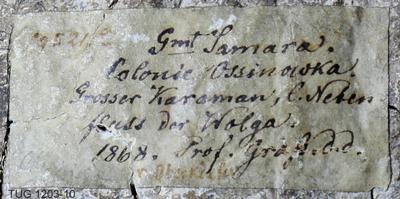 Gmt Samara.
Colonie Ossinowka.
Grosser Karaman, l. Neben
fluss der Wolga.
1868. Prof. d.d.
TUG 1203-10